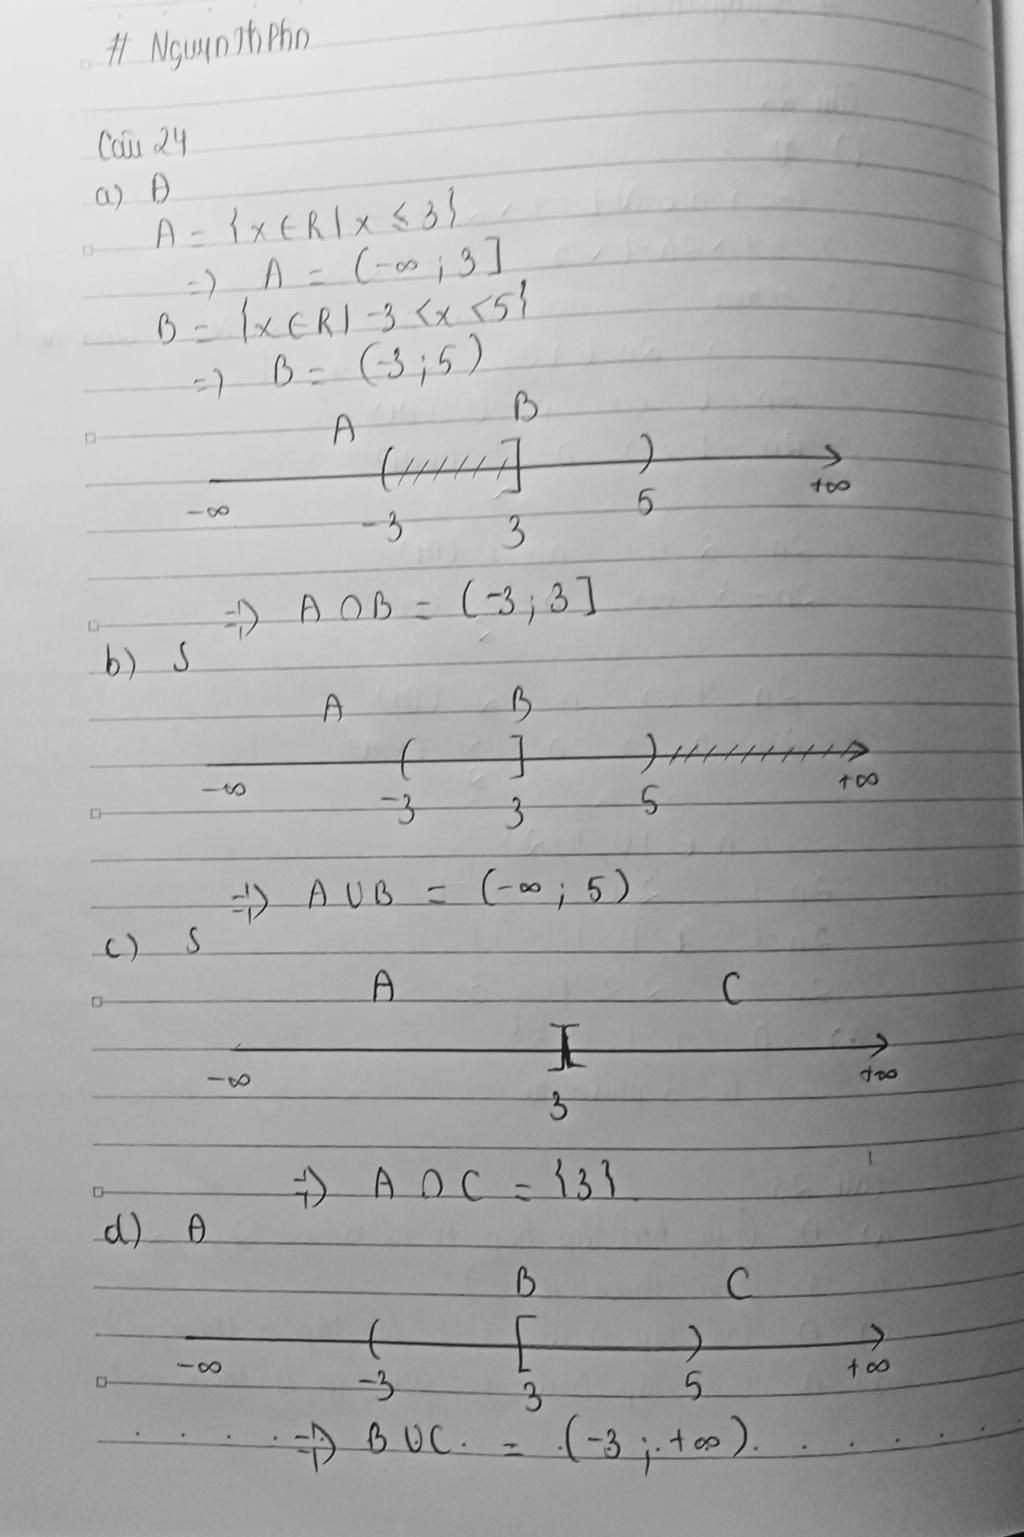 # NguynThPhn
Câu 24
a) Đ
A = {x ∈ R | x ≤ 3}
=) A = (-∞ ; 3]
B = {x ∈ R | -3 < x < 5}
=) B = (-3 ; 5)
A B
-∞ -3 3 5 +∞
=) A ∩ B = (-3 ; 3]
b) S
A B
-∞ -3 3 5 +∞
=) A ∪ B = (-∞ ; 5)
c) S
A C
-∞ 3 +∞
=) A ∩ C = {3}
d) Đ
B C
-∞ -3 3 5 +∞
=) B ∪ C = (-3 ; +∞)